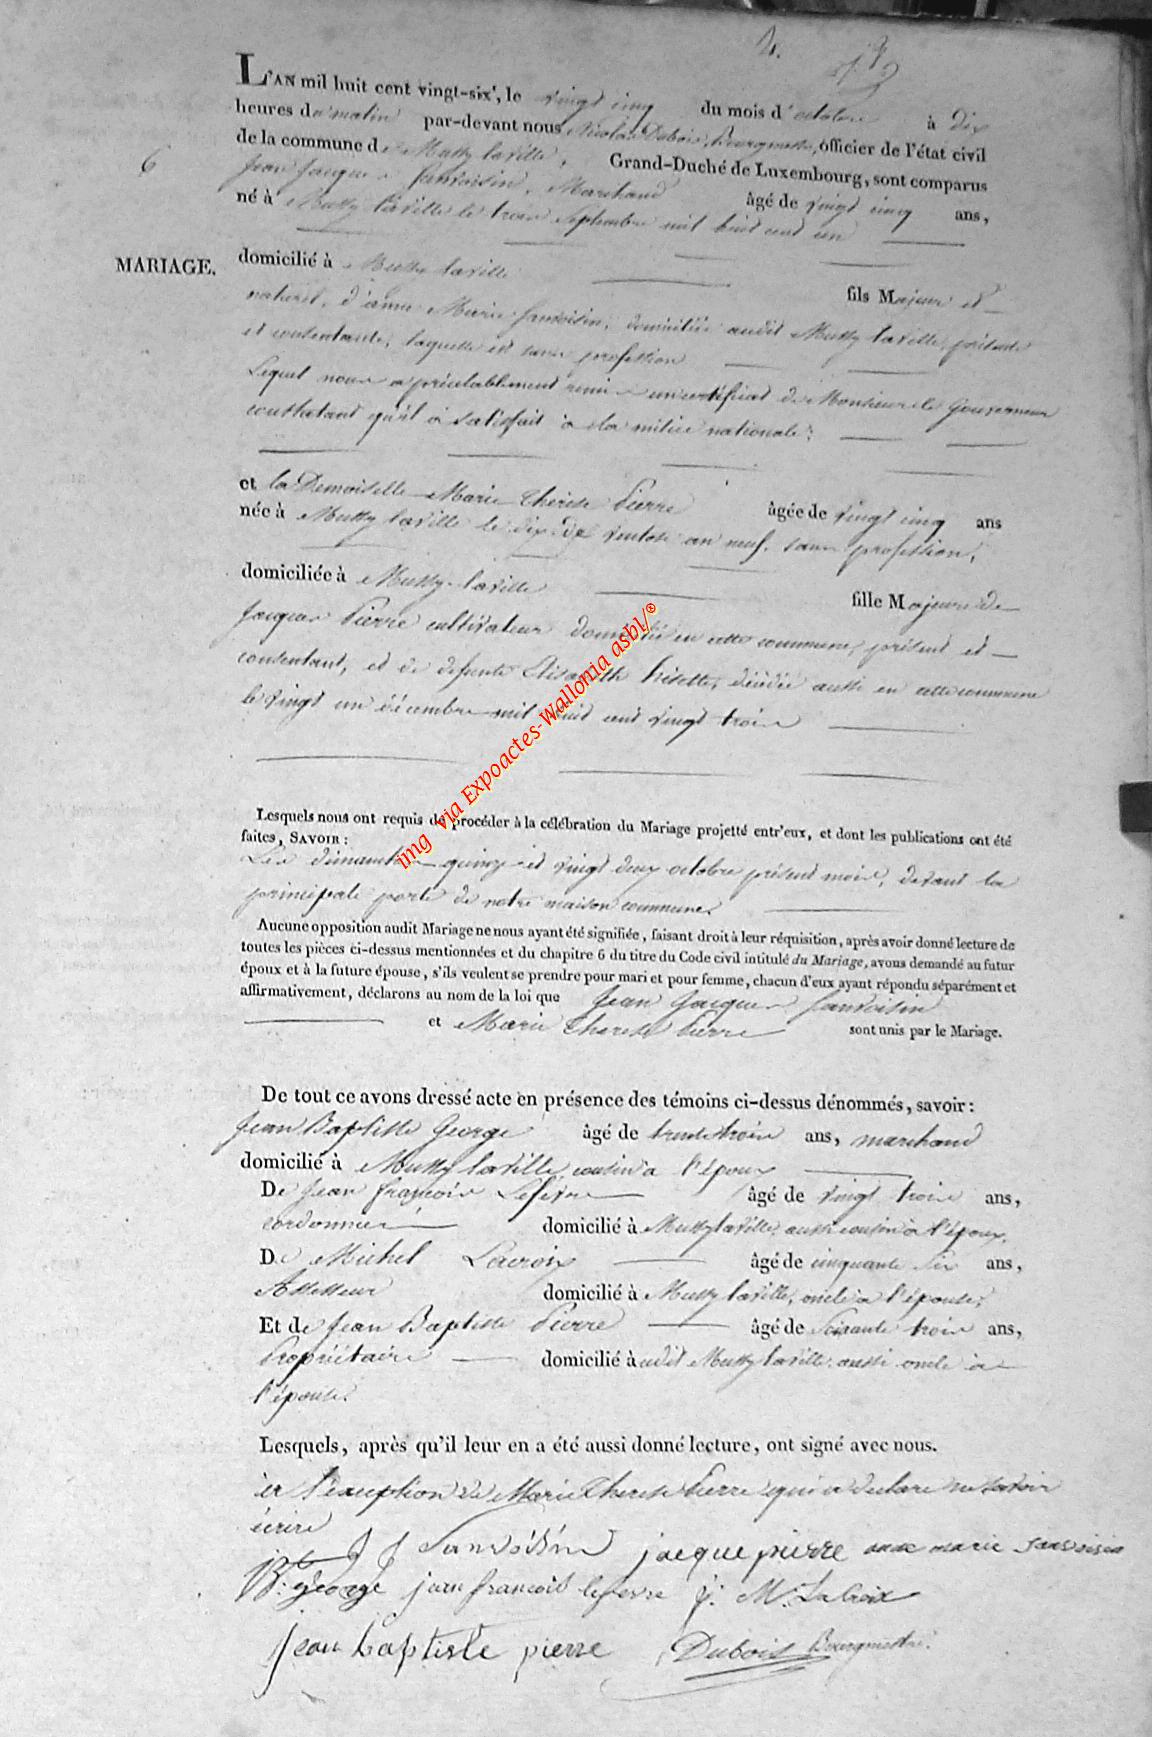 L'AN mil huit cent vingt-six, le vingt cinq du mois d'octobre à Dix
heures du matin par-devant nous Nicolas Dubois, Bourgmestre, officier de l'état civil
de la commune de Mussy laville, Grand-Duché de Luxembourg, sont comparus
6
Jean Jacques Sansoisin, Marchand âgé de vingt cinq ans,
né à Mussy laville le trois Septembre mil huit cent un
MARIAGE.
domicilié à Mussy laville fils Majeur et
naturel, d'anne Marie Sansoisin, domiciliée audit Mussy laville, présente
et consentante, laquelle est sans profession
Lequel nous a préalablement remis un certificat de Monsieur le Gouverneur
constatant qu'il a satisfait à la milice nationale;
et la Demoiselle Marie Therese Pierre âgée de vingt cinq ans
née à Mussy laville le dix ventose an neuf, sans profession,
domiciliée à Mussy-laville fille Majeure de
Jacques Pierre cultivateur domicilié en cette commune, présent et
consentant, et de defunte Elisabeth décédée aussi en cette commune
le vingt un décembre mil huit cent vingt trois
Lesquels nous ont requis de procéder à la célébration du Mariage projetté entr'eux, et dont les publications ont été
faites, SAVOIR :
Les dimanches quinze et vingt deux octobre présent mois, devant la
principale porte de notre maison commune.
Aucune opposition audit Mariage ne nous ayant été signifiée, faisant droit à leur réquisition, après avoir donné lecture de
toutes les pièces ci-dessus mentionnées et du chapitre 6 du titre du Code civil intitulé du Mariage, avons demandé au futur
époux et à la future épouse, s'ils veulent se prendre pour mari et pour femme, chacun d'eux ayant répondu séparément et
affirmativement, déclarons au nom de la loi que Jean Jacques Sansoisin
et Marie Therese Pierre sont unis par le Mariage.
De tout ce avons dressé acte en présence des témoins ci-dessus dénommés, savoir :
Jean Baptiste George âgé de trente trois ans, marchand
domicilié à Mussy laville cousin a l'époux
De Jean françois Lefevre âgé de vingt trois ans,
cordonnier domicilié à Mussy laville, aussi cousin à l'époux.
De Michel Lacroix âgé de cinquante six ans,
Assesseur domicilié à Mussy laville, oncle a l'épouse;
Et de Jean Baptiste Pierre âgé de Soixante trois ans,
Propriétaire domicilié à audit Mussy laville, aussi oncle à
l'épouse.
Lesquels, après qu'il leur en a été aussi donné lecture, ont signé avec nous.
à l'exception de Marie Therese Pierre qui a declaré ne savoir
écrire
J J Sansoisin jacque pierre anne marie sansoisin
Bte george jean francois lefevre J. M. LaCroix
jean baptiste pierre Dubois Bourgmestre.
img via Expoactes-Wallonia asbl/®